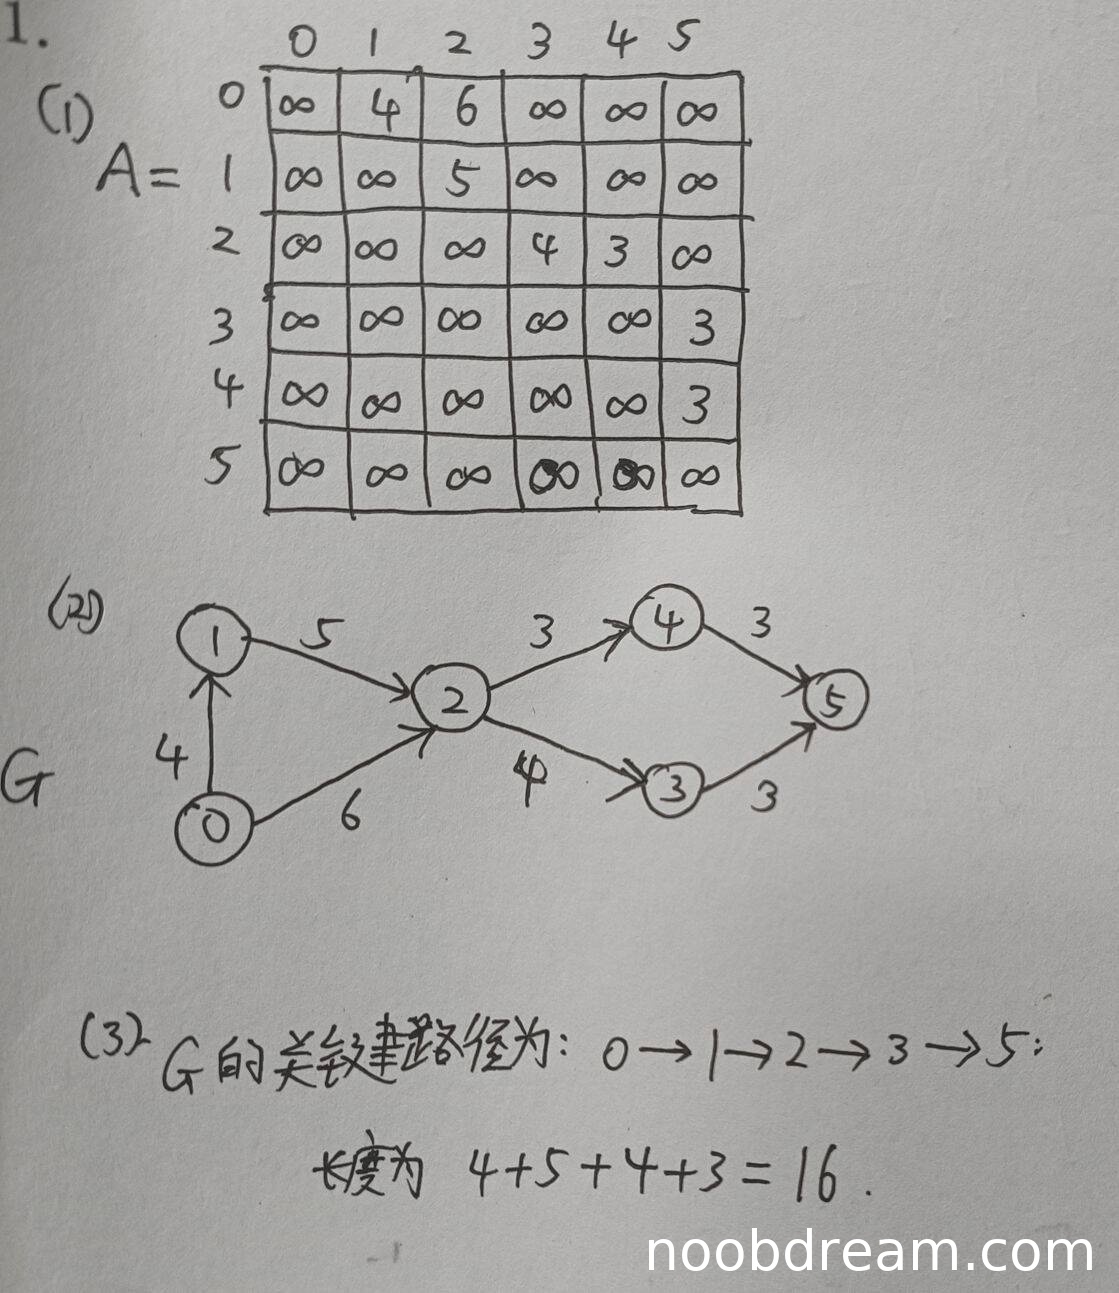 1.
0 1 2 3 4 5
(1) A=
0 ∞ 4 6 ∞ ∞ ∞
1 ∞ ∞ 5 ∞ ∞ ∞
2 ∞ ∞ ∞ 4 3 ∞
3 ∞ ∞ ∞ ∞ ∞ 3
4 ∞ ∞ ∞ ∞ ∞ 3
5 ∞ ∞ ∞ ∞ ∞ ∞
(2)
1 5 3 4 3
2 5
G 4 4 3 3
0 6
(3) G的关键路径为: 0→1→2→3→5;
长度为 4+5+4+3=16.
noobdream.com